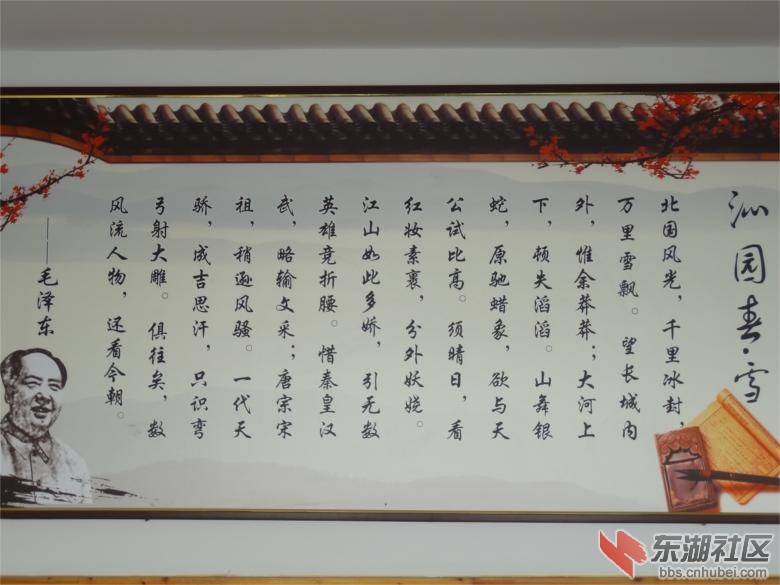 沁园春·雪
北国风光，千里冰封，
万里雪飘。望长城内
外，惟余莽莽；大河上
下，顿失滔滔。山舞银
蛇，原驰蜡象，欲与天
公试比高。须晴日，看
红妆素裹，分外妖娆。
江山如此多娇，引无数
英雄竞折腰。惜秦皇汉
武，略输文采；唐宗宋
祖，稍逊风骚。一代天
骄，成吉思汗，只识弯
弓射大雕。俱往矣，数
风流人物，还看今朝。
——毛泽东
东湖社区
bbs.cnhubei.com